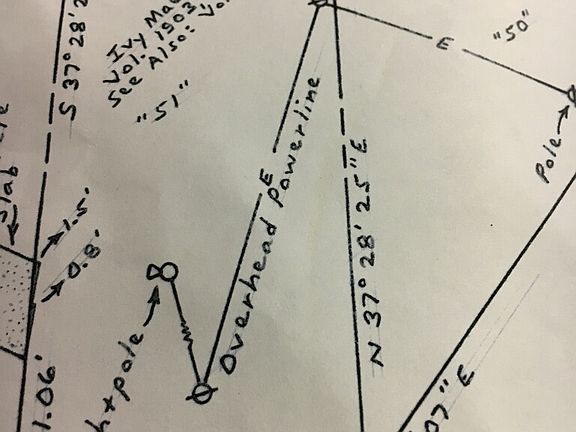 S 37° 28' 2
Vol. 1903
See Also: Vo
"51"
E
"50"
Pole
E
Overhead Powerline
N 37° 28' 25" E
1.5'
0.8'
ht pole
1.06'
07" E